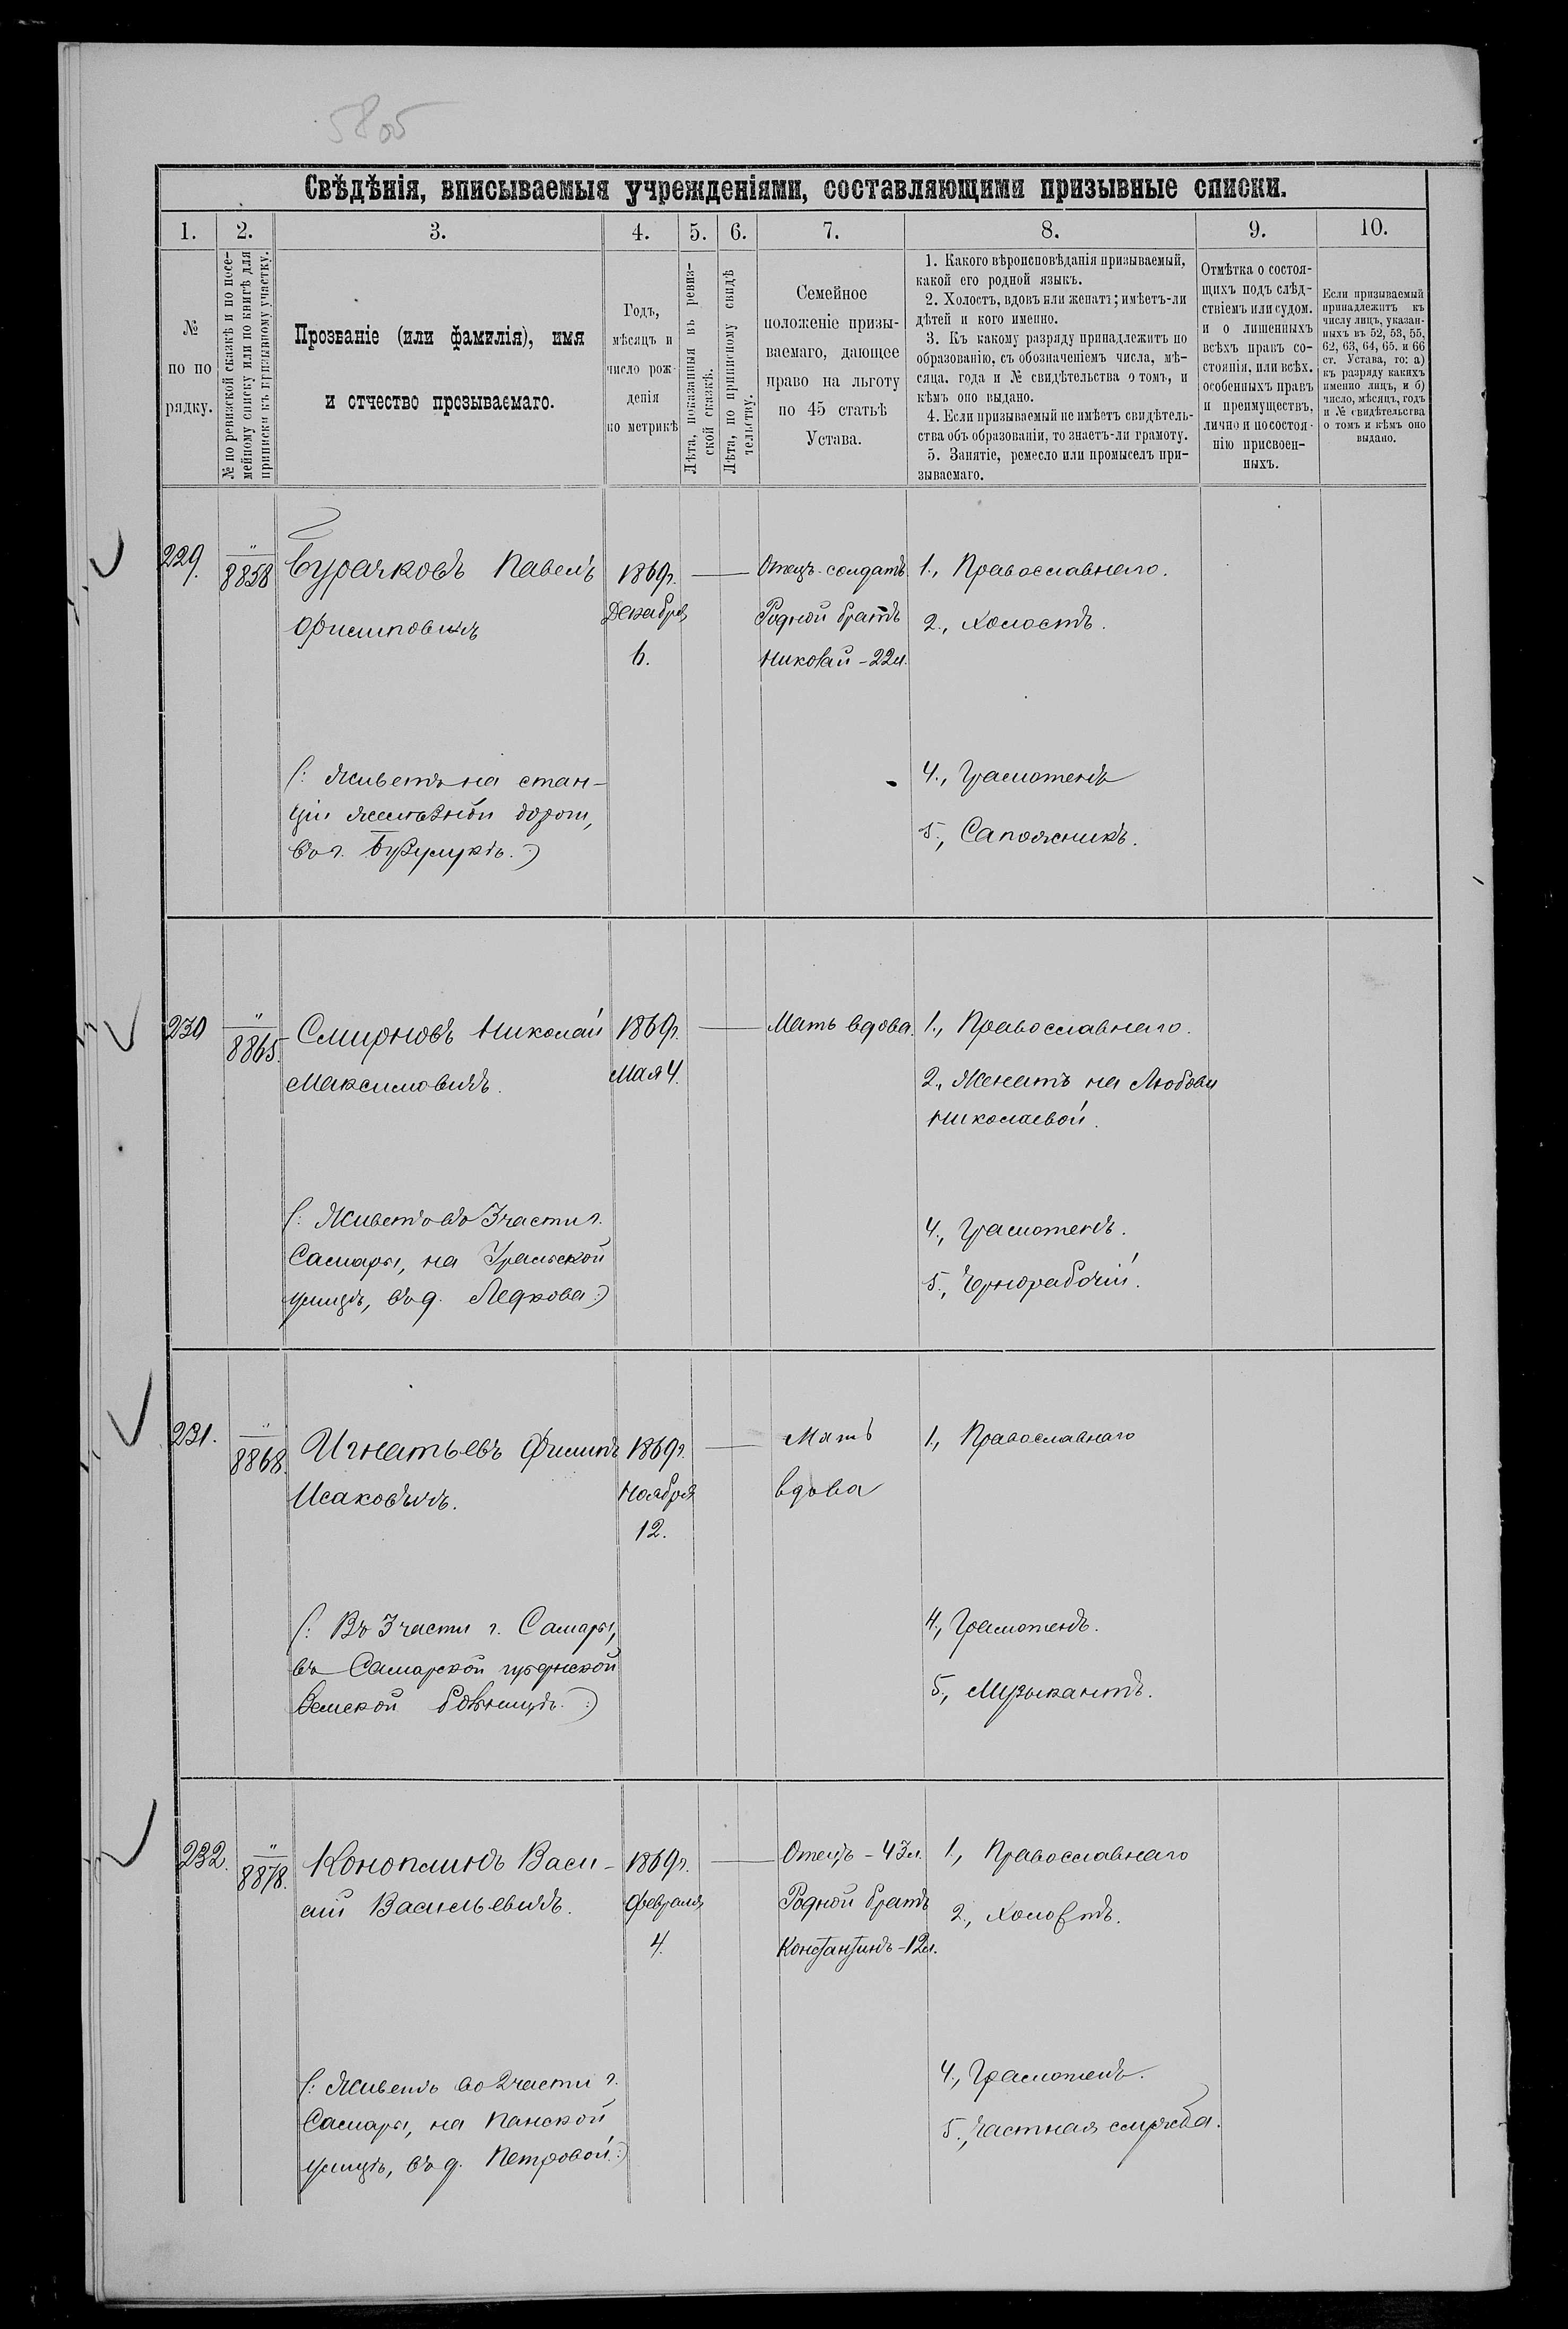 5805
Свѣдѣнія, вписываемыя учрежденіями, составляющими призывные списки.
1. 2. 3. 4. 5. 6. 7. 8. 9. 10.
№
по по
рядку.
№ по ревизской сказкѣ и по посе-
мейному списку или по книгѣ для
приписки къ призывному участку.
Прозваніе (или фамилія), имя
и отчество прозываемаго.
Годъ,
мѣсяцъ и
число рож-
денія
по метрикѣ
Лѣта, показанныя въ ревиз-
ской сказкѣ.
Лѣта, по приписному свидѣ
тельству.
Семейное
положеніе призы-
ваемаго, дающее
право на льготу
по 45 статьѣ
Устава.
1. Какого вѣроисповѣданія призываемый,
какой его родной языкъ.
2. Холостъ, вдовъ или женатъ; имѣетъ-ли
дѣтей и кого именно.
3. Къ какому разряду принадлежитъ по
образованію, съ обозначеніемъ числа, мѣ-
сяца, года и № свидѣтельства о томъ, и
кѣмъ оно выдано.
4. Если призываемый не имѣетъ свидѣтель-
ства объ образованіи, то знаетъ-ли грамоту.
5. Занятіе, ремесло или промыселъ при-
зываемаго.
Отмѣтка о состоя-
щихъ подъ слѣд-
ствіемъ или судом.
и о лишенныхъ
всѣхъ правъ со-
стоянія, или всѣх.
особенныхъ правъ
и преимуществъ,
лично и по состоя-
нію присвоен-
ныхъ.
Если призываемый
принадлежитъ къ
числу лицъ, указан-
ныхъ въ 52, 53, 55,
62, 63, 64, 65, и 66
ст. Устава, то: а)
къ разряду какихъ
именно лицъ, и б)
число, мѣсяцъ, годъ
и № свидѣтельства
о томъ и кѣмъ оно
выдано.
229.
"
8858
Бурачковъ Павелъ
Филиповичъ
1869г.
Декабря
6.
Отецъ-солдатъ
Родной братъ
Николай-22л.
1., Православнаго.
2., Холостъ.
(: Живетъ на стан-
ціи желѣзной дороги,
въ г. Бузулукѣ.:)
4., Грамотенъ
5., Сапожникъ.
230
"
8865.
Смирновъ Николай
Максимовичъ.
1869г.
Мая 4.
Мать вдова.
1., Православнаго.
2., Женатъ на Любови
Николаевой.
(: Живетъ въ 3 части г.
Самары, на Уральской
улицѣ, въ д. Ледкова:)
4., Грамотенъ.
5., Чернорабочій.
231.
"
8868.
Игнатьевъ Филипъ
Исаковичъ.
1869г.
Ноября
12.
Мать
вдова
1., Православнаго
(: Въ 3 части г. Самары,
въ Самарской губернской
земской больницѣ.:)
4., Грамотенъ.
5., Музыкантъ.
232.
"
8878.
Коноплинъ Васи-
лій Васильевичъ.
1869г.
Февраля
4.
Отецъ-43л.
Родной братъ
Константинъ-12л.
1., Православнаго
2., Холостъ.
(: Живетъ во 2 части г.
Самары, на Панской
улицѣ, въ д. Петровой.:)
4., Грамотенъ.
5., Частная служба.